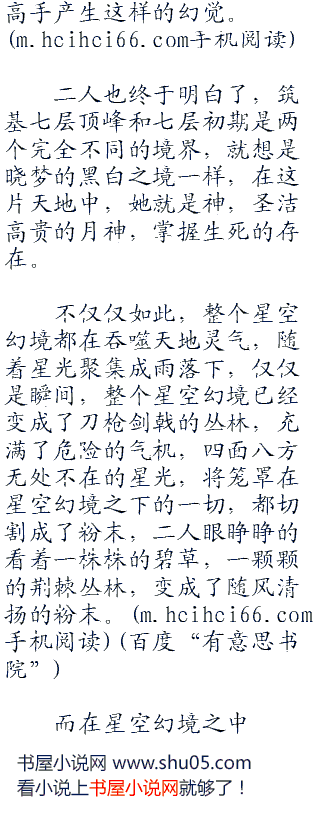 高手产生这样的幻觉。
(m.hcihci66.com手机阅读)
二人也终于明白了，筑
基七层顶峰和七层初期是两
个完全不同的境界，就想是
晓梦的黑白之境一样，在这
片天地中，她就是神，圣洁
高贵的月神，掌握生死的存
在。
不仅仅如此，整个星空
幻境都在吞噬天地灵气，随
着星光聚集成雨落下，仅仅
是瞬间，整个星空幻境已经
变成了刀枪剑戟的丛林，充
满了危险的气机，四面八方
无处不在的星光，将笼罩在
星空幻境之下的一切，都切
割成了粉末，二人眼睁睁的
看着一株株的碧草，一颗颗
的荆棘丛林，变成了随风清
扬的粉末。(m.hcihci66.com
手机阅读)(百度“有意思书
院”)
而在星空幻境之中
书屋小说网 www.shu05.com
看小说上书屋小说网就够了！